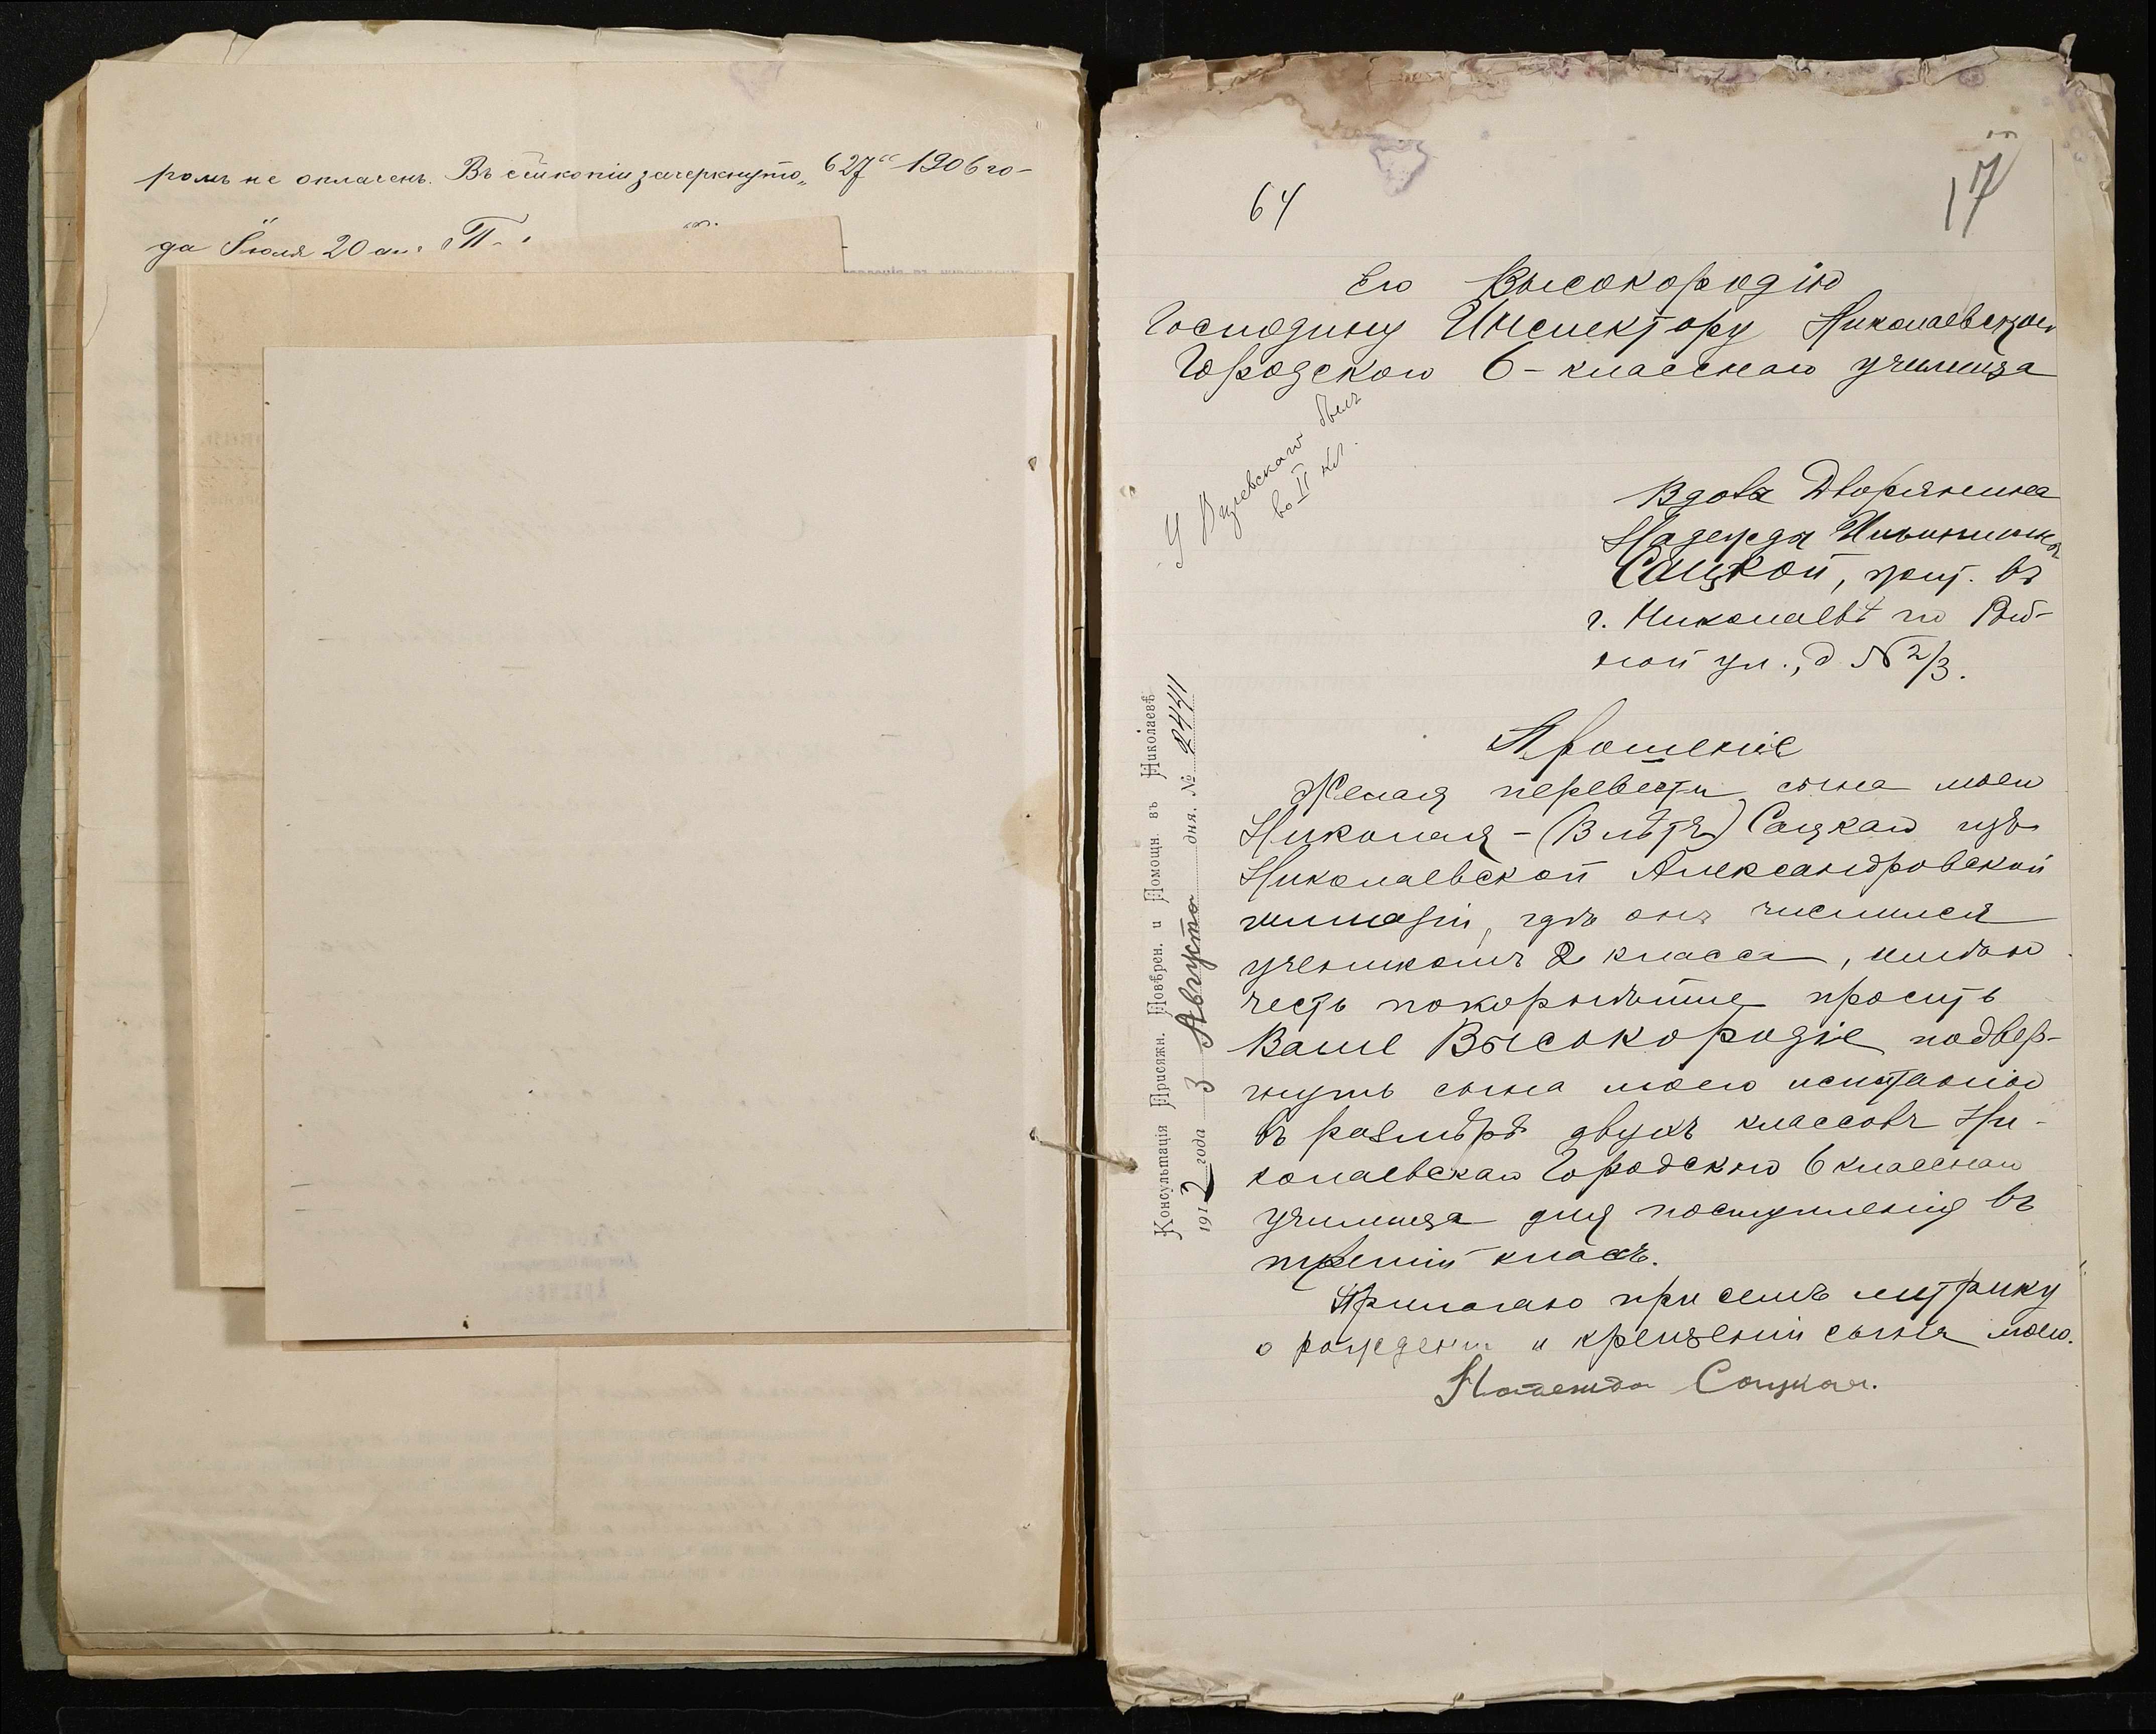 ромъ не оплаченъ. Въ сей копіи зачеркнуто „627“ 1906 го-
да Іюля 20
64
17
Его Высокородію
Господину Инспектору Николаевскаго
Городского 6-класснаго училища
былъ
во II кл.
Вдова Дворянина
Надежда Ильинична
Сацкой, жит. въ
г. Николаевѣ по
ной ул., д № 2/3.
Прошеніе
Желая перевести сына моего
Николая - Сацкаго изъ
Николаевской Александровской
гимназіи, гдѣ онъ числился
ученикомъ 2 класса, имѣю
честь покорнѣйше просить
Ваше Высокородіе подвер-
гнуть сына моего испытанію
въ размѣрѣ двухъ классовъ Ни-
колаевскаго Городского 6 класснаго
училища для поступленія въ
третій классъ.
Прилагаю при семъ метрику
о рожденіи и крещеніи сына моего.
Надежда Сацкая.
Консультація Присяжн. Повѣрен. и Помощн. въ Николаевѣ
1912 года 3 Августа дня. № 2441